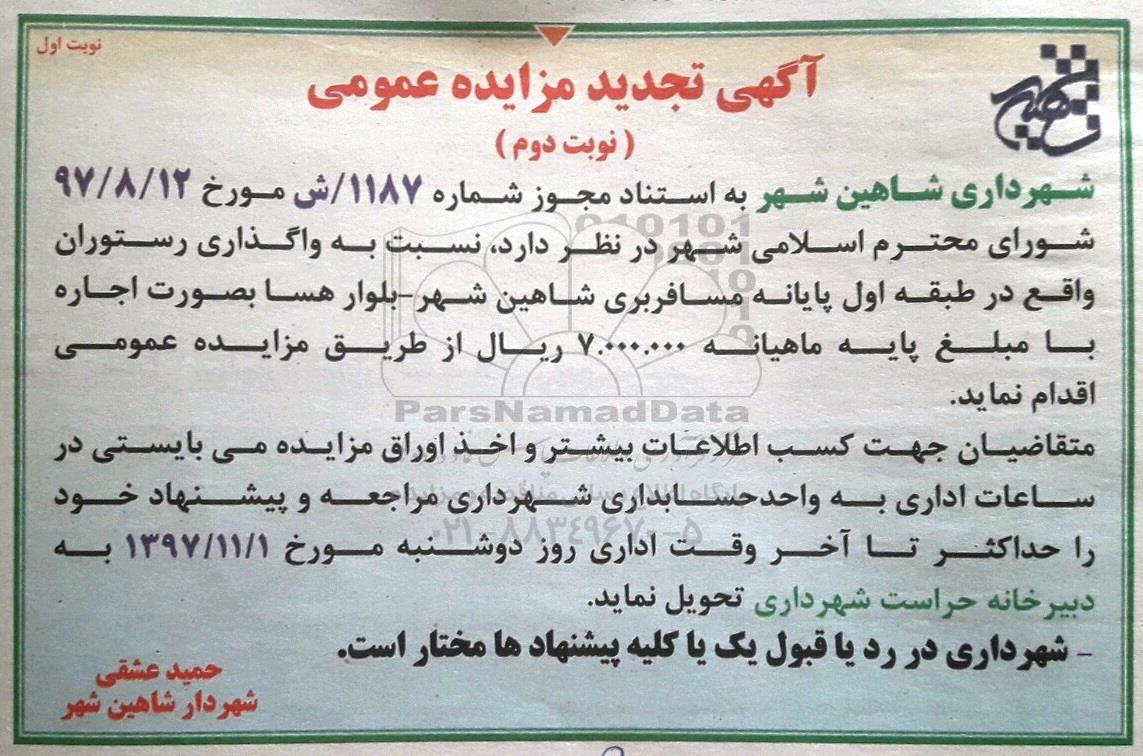 نوبت اول
آگهی تجدید مزایده عمومی
( نوبت دوم )
شهرداری شاهین شهر به استناد مجوز شماره ۱۱۸۷/ش مورخ ۹۷/۸/۱۲
شورای محترم اسلامی شهر در نظر دارد، نسبت به واگذاری رستوران
واقع در طبقه اول پایانه مسافربری شاهین شهر-بلوار هسا بصورت اجاره
با مبلغ پایه ماهیانه ۷.۰۰۰.۰۰۰ ریال از طریق مزایده عمومی
اقدام نماید.
متقاضیان جهت کسب اطلاعات بیشتر و اخذ اوراق مزایده می بایستی در
ساعات اداری به واحدحسابداری شهرداری مراجعه و پیشنهاد خود
را حداکثر تا آخر وقت اداری روز دوشنبه مورخ ۱۳۹۷/۱۱/۱ به
دبیرخانه حراست شهرداری تحویل نماید.
- شهرداری در رد یا قبول یک یا کلیه پیشنهاد ها مختار است.
حمید عشقی
شهردار شاهین شهر
ParsNamadData
۰۲۱-۸۸۳۴۹۶۷۰-۵